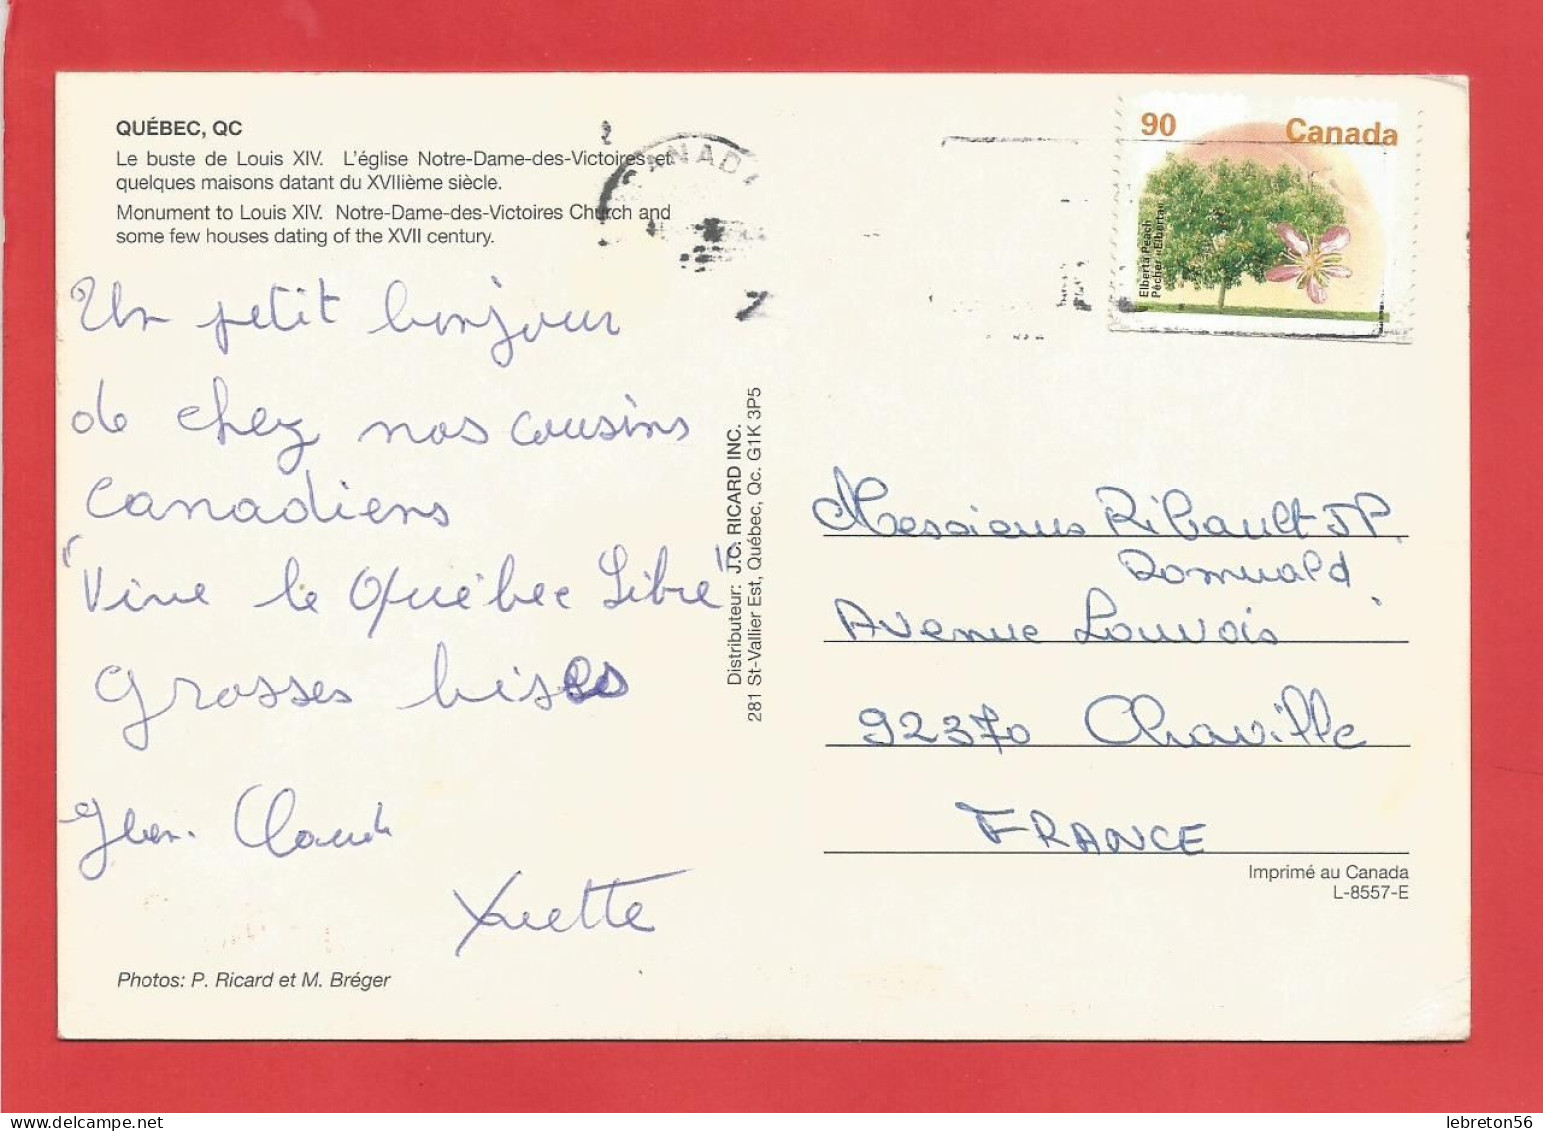 QUÉBEC, QC
Le buste de Louis XIV. L'église Notre-Dame-des-Victoires et
quelques maisons datant du XVIIième siècle.
Monument to Louis XIV. Notre-Dame-des-Victoires Church and
some few houses dating of the XVII century.
Un petit bonjour
de chez nos cousins
Canadiens
"Vive le Québec Libre"
Grosses bises
Jean. Claude
Yvette
Photos: P. Ricard et M. Bréger
Distributeur: J.C. RICARD INC.
281 St-Vallier Est, Québec, Qc. G1K 3P5
CANADA
90 Canada
Elberta Peach
Pêcher «Elberta»
Messieurs Ribault JP.
Romuald
Avenue Louvois
92370 Chaville
FRANCE
Imprimé au Canada
L-8557-E
lebreton56